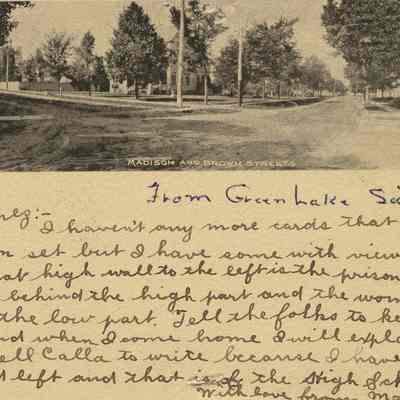 MADISON AND BROWN STREETS
From Green Lake
I haven't any more cards that
set but I have some with view
at high wall to the left is the prison
behind the high part and the wom
the low part. Tell the folks to ke
nd when I come home I will expla
ell Calla to write because I have
left and that is of the High Sch
With love from